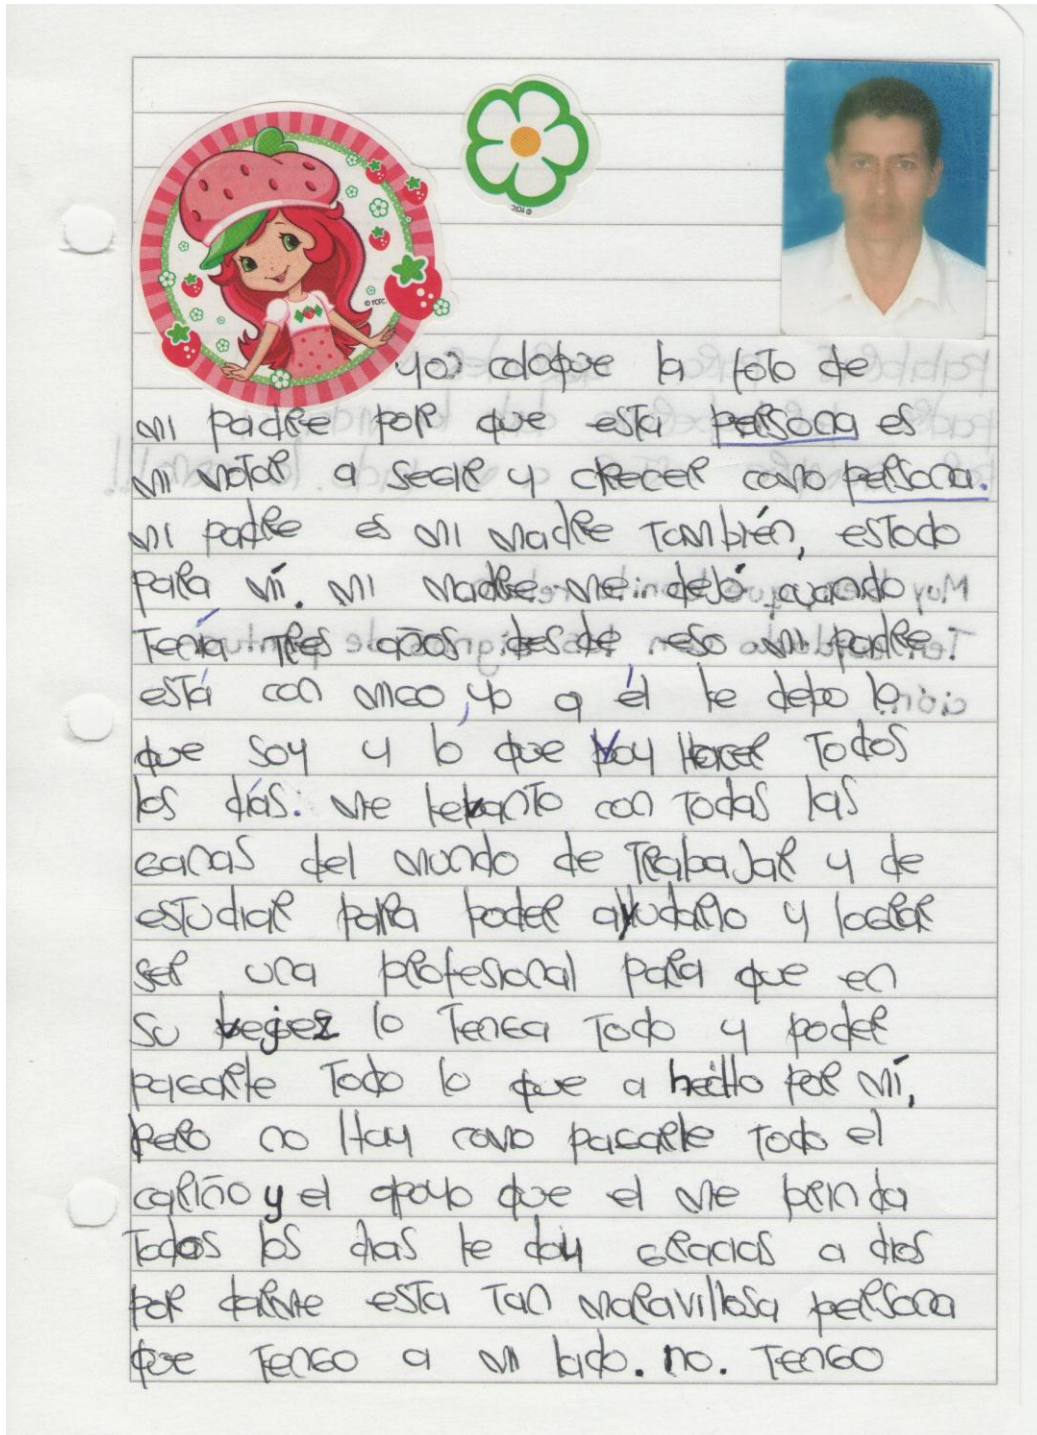 yo: coloque la foto de
mi padre por que esta persona es
mi motor a segir y crecer como persona.
mi padre es mi madre También, estodo
para mí. mi madre me dejó cuando
Tenía Tres años desde eso mi padre
está con migo, yo a él le debo lo
que soy y lo que voy Hacer Todos
los días. me levanto con Todas las
ganas del mundo de Trabajar y de
estudiar para poder ayudarlo y lograr
ser una profesional para que en
su vejez lo Tenga Todo y poder
pagarle Todo lo que a hecho por mí,
pero no Hay como pagarle Todo el
cariño y el apoyo que el me brinda
Todos los dias le doy gracias a dios
por darme esta Tan maravillosa persona
que Tengo a mi lado. no. Tengo